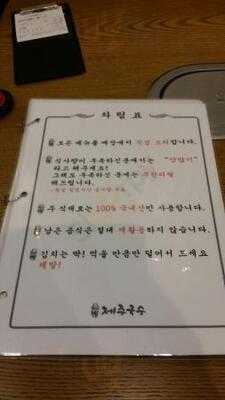 차림표
모든 메뉴를 매장에서 직접 조리합니다.
식사량이 부족하신분께서는 "양많이"
라고 해주세요!
그래도 부족하신 분께는 무한리필
해드립니다.
주 식재료는 100% 국내산만 사용합니다.
남은 음식은 절대 재활용하지 않습니다.
김치는 딱! 먹을 만큼만 덜어서 드세요
제발!
제주국수